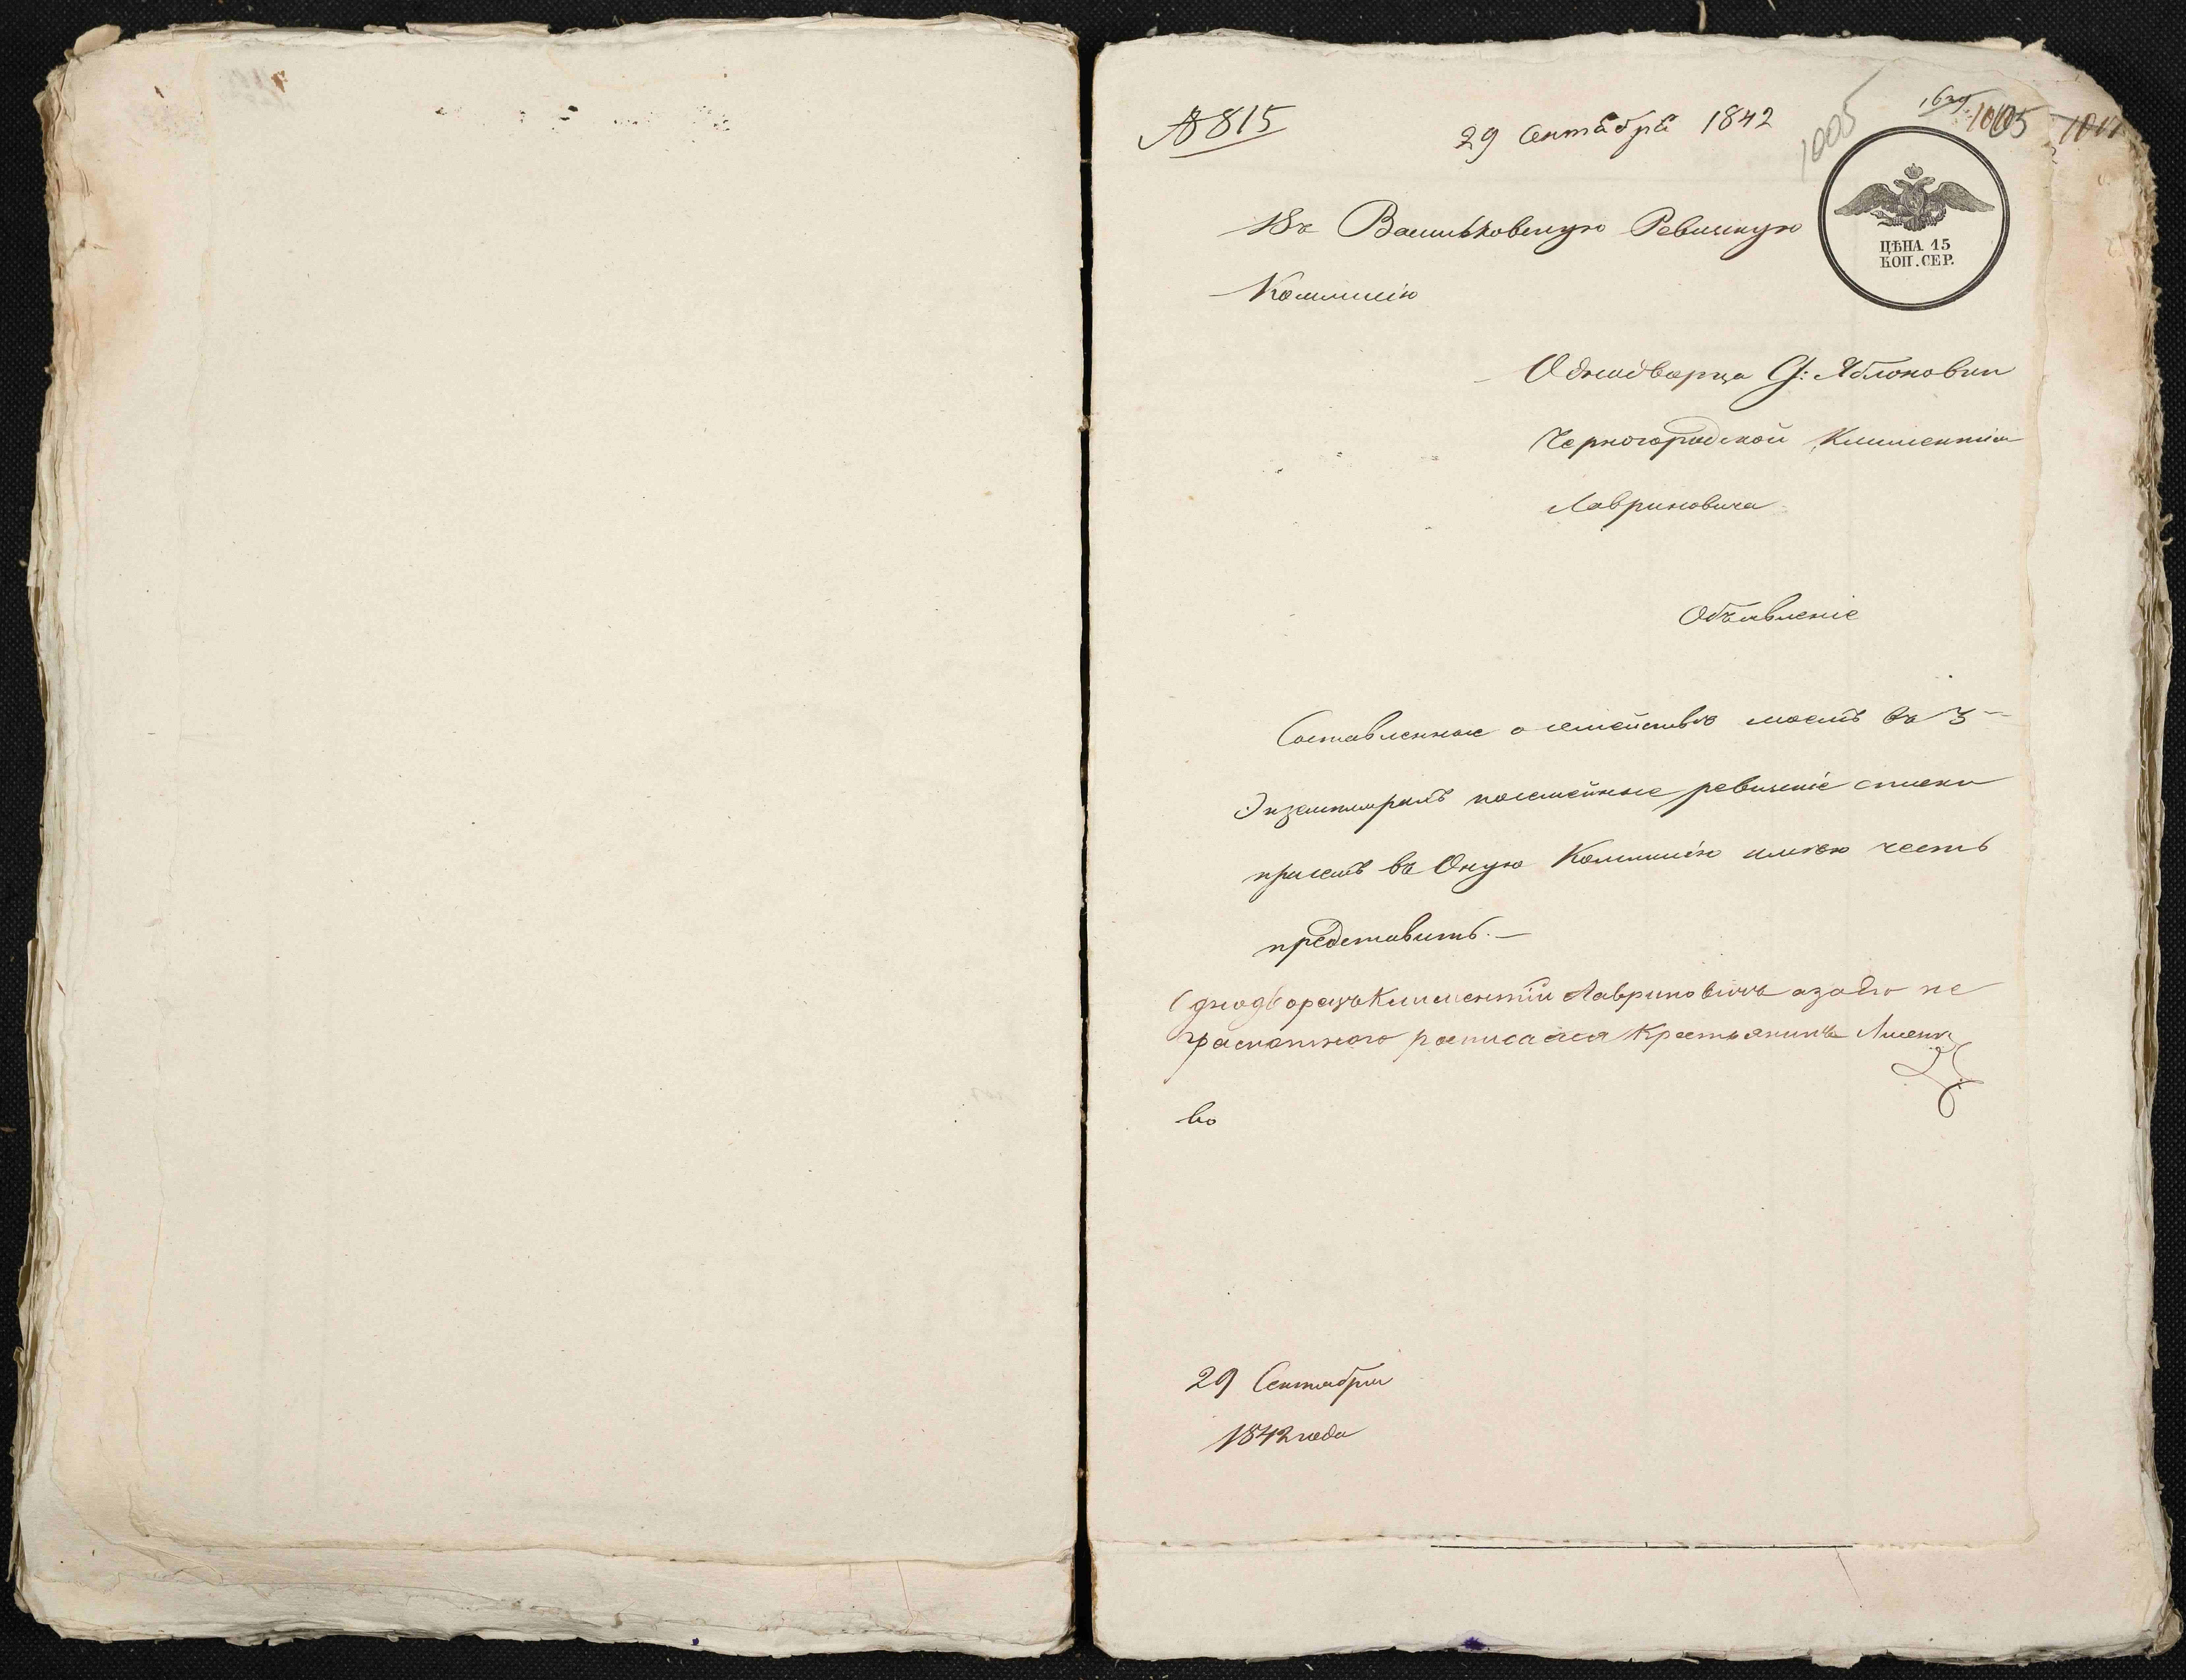 № 815
29 Сентября 1842
1005
1639
1005
ЦѢНА 15
КОП. СЕР.
Въ Васильковскую Ревизкую
Коммисію
Однодворца С: Яблоновки
Черногородской Климентія
Лавриновича
Объявленіе
Составленные о семействѣ моемъ въ 3
Экземплярахъ посемейные ревизкіе списки
при семъ въ Оную Коммисію имѣю честь
представить. —
Однодворецъ Климентій Лавриновичъ азаего не
грамотного росписался Крестьянинъ
во
29 Сентября
1842 года